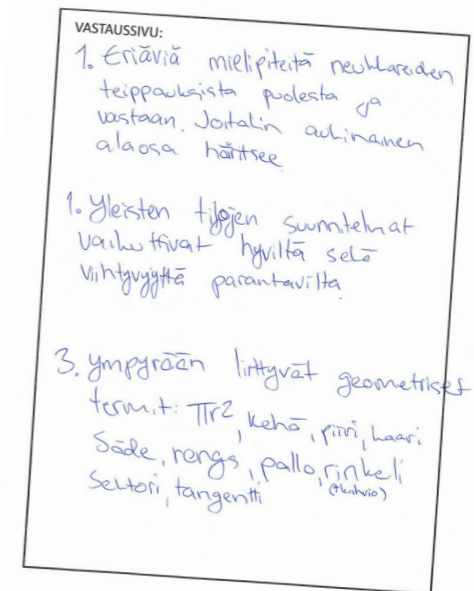 VASTAUSSIVU:
1. Eriäviä mielipiteitä neukkareiden
teippauksista puolesta ja
vastaan. Joitakin aukinainen
alaosa häiritsee
1. Yleisten tilojen suunnitelmat
vaikuttivat hyviltä sekä
viihtyvyyttä parantavilta
3. Ympyrään liittyvät geometriset
termit: πr², kehä, piiri, kaari
Säde, rengs, pallo, rinkeli
Sektori, tangentti (+kahvio)